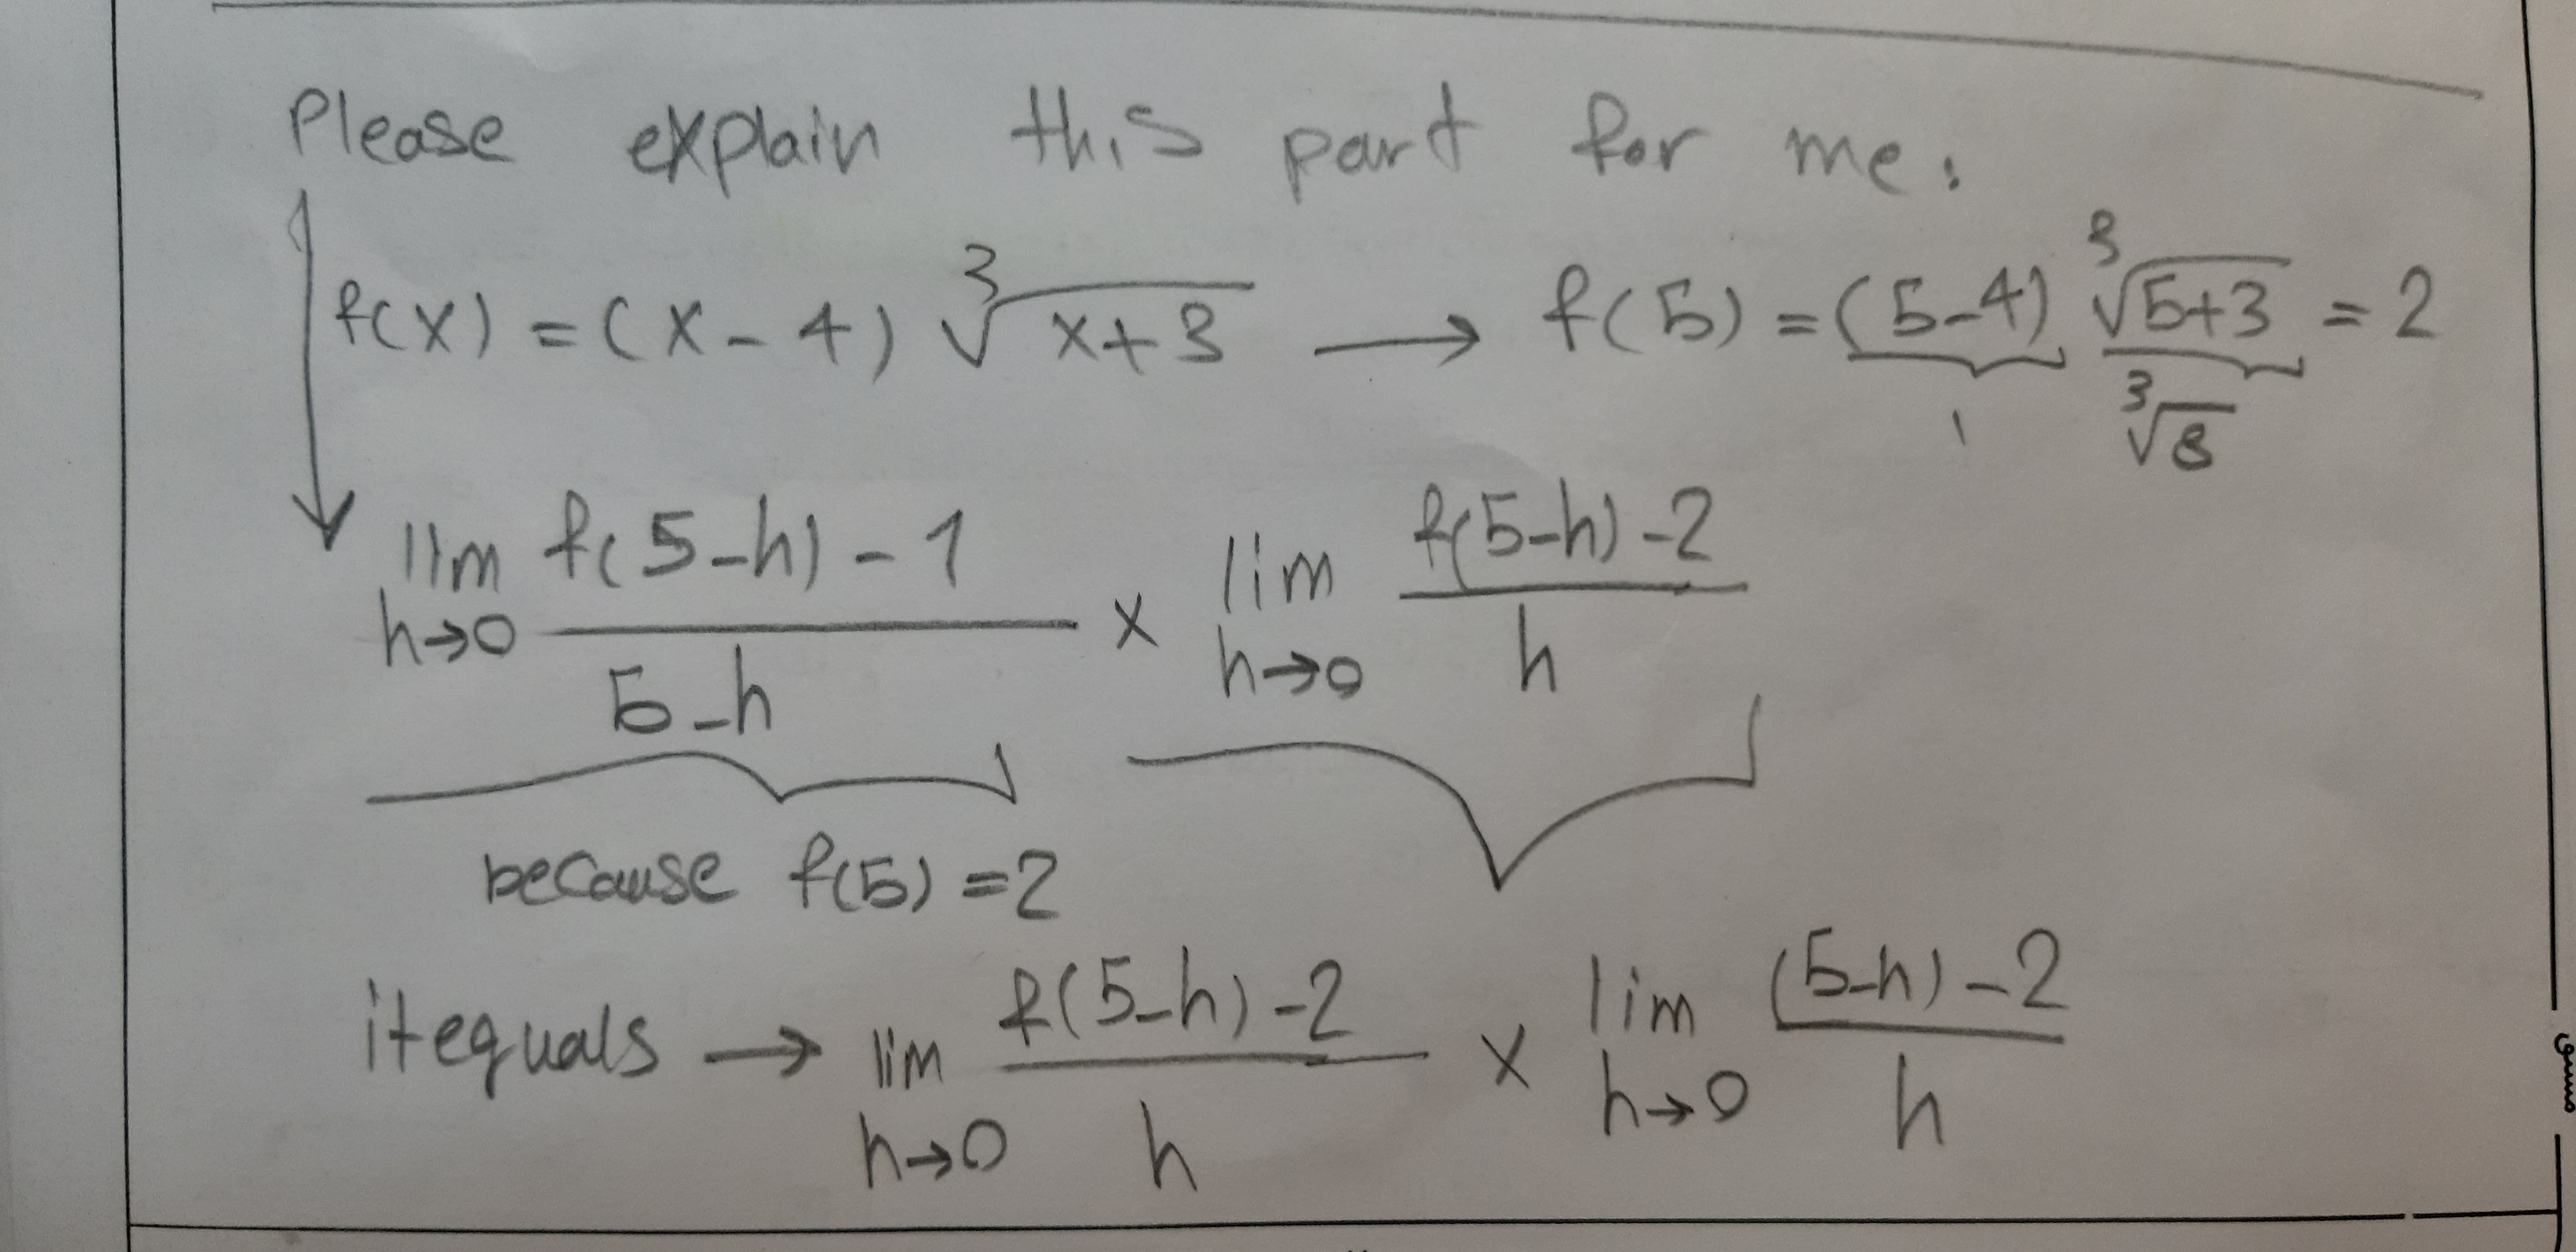 Please explain this part for me:
f(x) = (x-4) ∛(x+3) → f(5) = (5-4) ∛(5+3) = 2
1 ∛8
lim h→0 (f(5-h) - 1)/(5-h) × lim h→0 (f(5-h) - 2)/h
because f(5) = 2
it equals → lim h→0 (f(5-h) - 2)/h × lim h→0 ((5-h) - 2)/h